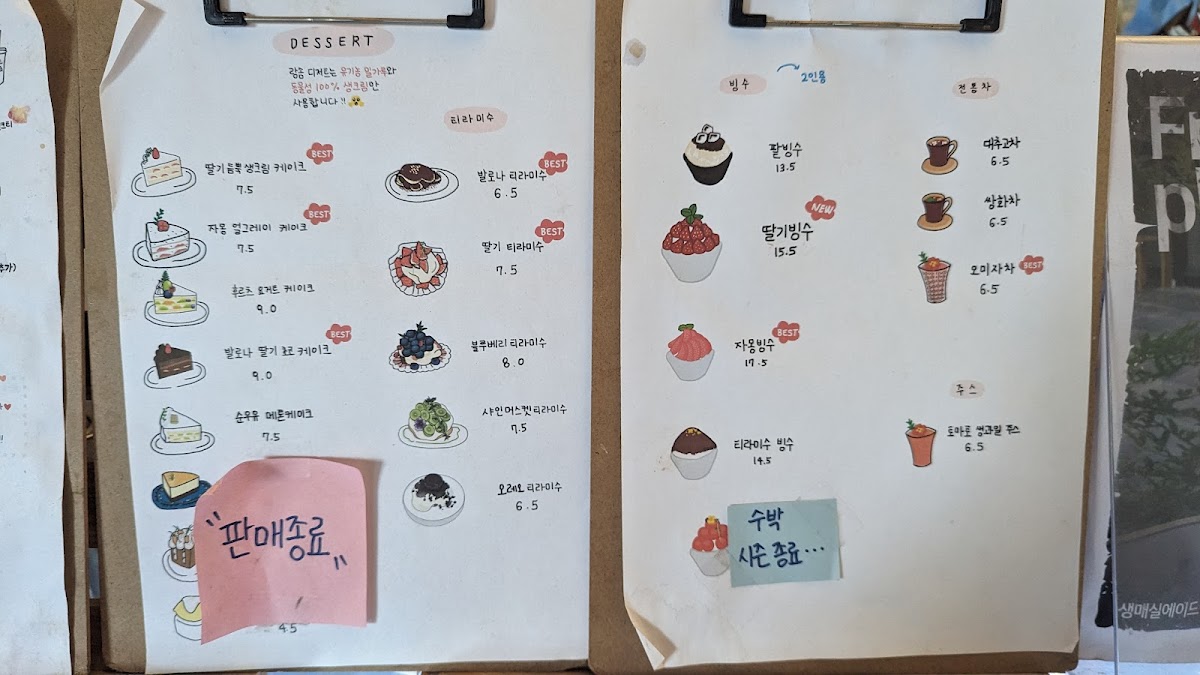 DESSERT
랑송 디저트는 유기농 밀가루와
동물성 100% 생크림만
사용합니다!!
딸기듬뿍생크림 케이크
BEST
7.5
자몽 얼그레이 케이크
BEST
7.5
후르츠 요거트 케이크
9.0
발로나 딸기 초코 케이크
BEST
9.0
순우유 메론케이크
7.5
"판매종료"
4.5
티라미수
발로나 티라미수
BEST
6.5
딸기 티라미수
BEST
7.5
블루베리 티라미수
8.0
샤인머스켓티라미수
7.5
오레오티라미수
6.5
빙수
2인용
팥빙수
13.5
딸기빙수
NEW
15.5
자몽빙수
BEST
17.5
티라미수 빙수
14.5
수박
시즌 종료...
전통차
대추고차
6.5
쌍화차
6.5
오미자차
BEST
6.5
주스
토마토 생과일 주스
6.5
생매실에이드